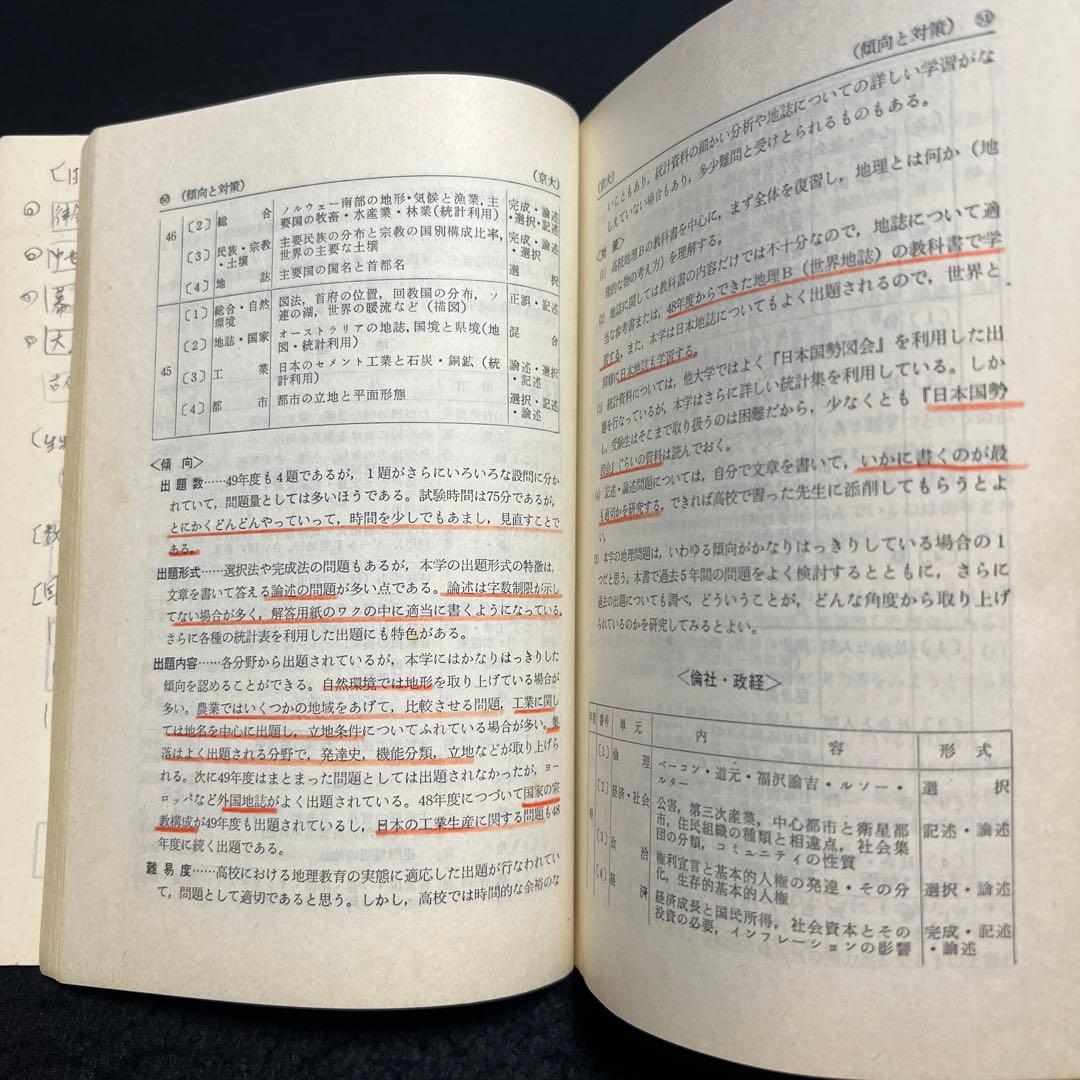 ㊿ (傾向と対策) (京大)
46 〔2〕総合 ノルウェー南部の地形・気候と漁業,主要国の牧畜・水産業・林業(統計利用) 完成・論述・選択・記述
〔3〕民族・宗教・土壌 主要民族の分布と宗教の国別構成比率,世界の主要な土壌 完成・論述・選択
〔4〕地誌 主要国の国名と首都名 選択
45 〔1〕総合・自然環境 図法,首府の位置,回教国の分布,ソ連の湖,世界の暖流など(描図) 正誤・記述
〔2〕地誌・国家 オーストラリアの地誌,国境と県境(地図・統計利用) 混合
〔3〕工業 日本のセメント工業と石炭・銅鉱(統計利用) 論述・選択・記述
〔4〕都市 都市の立地と平面形態 選択・記述・論述
〈傾向〉
出題数……49年度も4題であるが,1題がさらにいろいろな設問に分か
れていて,問題量としては多いほうである。試験時間は75分であるが,
とにかくどんどんやっていって,時間を少しでもあまし,見直すことで
ある。
出題形式……選択法や完成法の問題もあるが,本学の出題形式の特徴は,
文章を書いて答える論述の問題が多い点である。論述は字数制限が示し
てない場合が多く,解答用紙のワクの中に適当に書くようになっている。
さらに各種の統計表を利用した出題にも特色がある。
出題内容……各分野から出題されているが,本学にはかなりはっきりした
傾向を認めることができる。自然環境では地形を取り上げている場合が
多い。農業ではいくつかの地域をあげて,比較させる問題,工業に関し
ては地名を中心に出題し,立地条件についてふれている場合が多い。集
落はよく出題される分野で,発達史,機能分類,立地などが取り上げら
れる。次に49年度はまとまった問題としては出題されなかったが,ヨー
ロッパなど外国地誌がよく出題されている。48年度につづいて国家の宗
教構成が49年度も出題されているし,日本の工業生産に関する問題も48
年度に続く出題である。
難易度……高校における地理教育の実態に適応した出題が行なわれてい
て,問題として適切であると思う。しかし,高校では時間的な余裕のな
(京大) (傾向と対策) 51
いこともあり,統計資料の細かい分析や地誌についての詳しい学習がな
しえていない場合もあり,多少難問と受けとられるものもある。
〈対策〉
(1) 高校地理Bの教科書を中心に,まず全体を復習し,地理とは何か(地
理的な物の考え方)を理解する。
(2) 地誌に関しては教科書の内容だけでは不十分なので,地誌について適
当な参考書または,48年度からできた地理B(世界地誌)の教科書で学
習する。また,本学は日本地誌についてもよく出題されるので,世界と
同様に日本地誌も学習する。
(3) 統計資料については,他大学ではよく『日本国勢図会』を利用した出
題を行なっているが,本学はさらに詳しい統計集を利用している。しか
し,受験生はそこまで取り扱うのは困難だから,少なくとも『日本国勢
図会』ぐらいの資料は読んでおく。
(4) 記述・論述問題については,自分で文章を書いて,いかに書くのが最
も適切かを研究する。できれば高校で習った先生に添削してもらうとよ
い。
(5) 本学の地理問題は,いわゆる傾向がかなりはっきりしている場合の1
つだと思う。本書で過去5年間の問題をよく検討するとともに,さらに
過去の出題についても調べ,どういうことが,どんな角度から取り上げ
られているのかを研究してみるとよい。
〈倫社・政経〉
年度 番号 単元 内容 形式
〔1〕倫理 ベーコン・道元・福沢諭吉・ルソー・ルター 選択
〔2〕経済・社会 公害,第三次産業,中心都市と衛星都市,住民組織の種類と相違点,社会集団の分類,コミュニティの性質 記述・論述
〔3〕政治 権利宣言と基本的人権の発達・その分化,生存的基本的人権 選択・論述
〔4〕経済 経済成長と国民所得,社会資本とその投資の必要,インフレーションの影響 完成・記述・論述